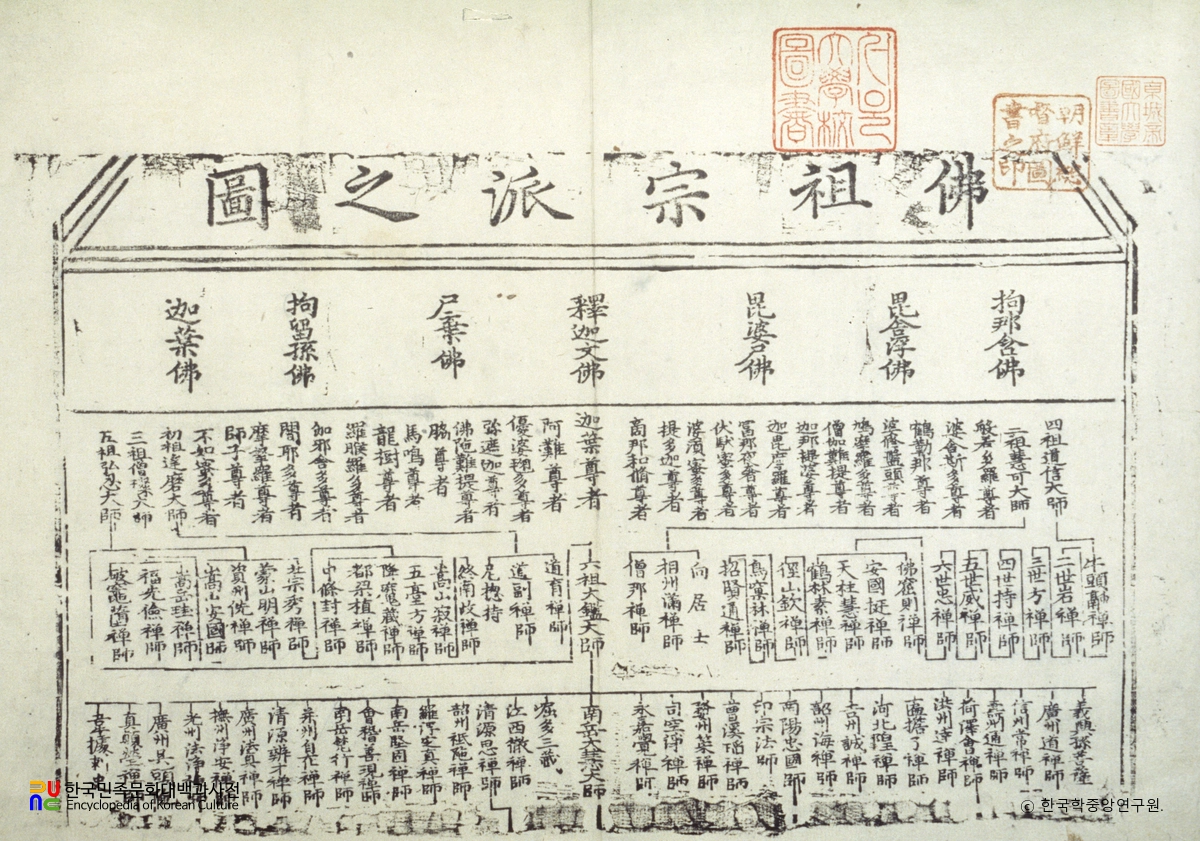 佛祖宗派之圖
서울大學校圖書
朝鮮總督府圖書之印
京城帝國大學圖書章
拘那含佛
毘舍浮佛
毘婆尸佛
釋迦文佛
尸棄佛
拘留孫佛
迦葉佛
四祖道信大師
二祖慧可大師
般若多羅尊者
婆舍斯多尊者
鶴勒那尊者
婆修盤頭尊者
鳩摩羅多尊者
僧伽難提尊者
迦那提婆尊者
迦毘摩羅尊者
富那夜奢尊者
伏馱蜜多尊者
婆須蜜多尊者
提多迦尊者
商那和脩尊者
迦葉尊者
阿難尊者
優婆毱多尊者
弥遮迦尊者
佛陁難提尊者
脇尊者
馬鳴尊者
龍樹尊者
羅睺羅多尊者
伽邪舍多尊者
闍耶多尊者
摩拏羅尊者
師子尊者
不如蜜多尊者
初祖達磨大師
三祖僧璨大師
五祖弘忍大師
牛頭融禪師
二世岩禪師
三世方禪師
四世持禪師
五世威禪師
六世忠禪師
佛窟則禪師
安國挺禪師
天柱慧禪師
鶴林素禪師
徑山欽禪師
鳥窠林禪師
招賢通禪師
向居士
相州滿禪師
僧那禪師
六祖大鑑大師
道育禪師
道副禪師
尼揔持
終南政禪師
嵩山寂禪師
五臺方禪師
降魔藏禪師
都梁植禪師
中條封禪師
北宗秀禪師
蒙山明禪師
資州侁禪師
嵩山安國師
嵩岳珪禪師
福先儉禪師
破竈墮禪師
廣州道禪師
信州常禪師
荷澤會禪師
河北隍禪師
吉州誠禪師
韶州海禪師
南陽忠國師
印宗法師
曹溪瑫禪師
婺州䇿禪師
司空淨禪師
永嘉覺禪師
南岳大慧大師
堀多三藏
江西徹禪師
清源思禪師
韶州祗陁禪師
羅浮定真禪師
南岳堅固禪師
會稽善現禪師
南岳梵行禪師
并州自在禪師
清凉辨才禪師
廣州法真禪師
撫州淨安禪師
한국민족문화대백과사전
Encyclopedia of Korean Culture
ⓒ 한국학중앙연구원.